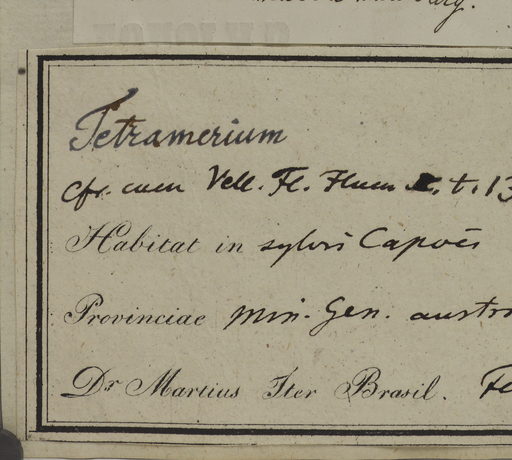 Tetramerium
Cfr. cum Vell. Fl. Flum t. 13
Habitat in sylvis Capoës
Provinciae Min. Gen. austro
Dr Martius Iter Brasil. Fe